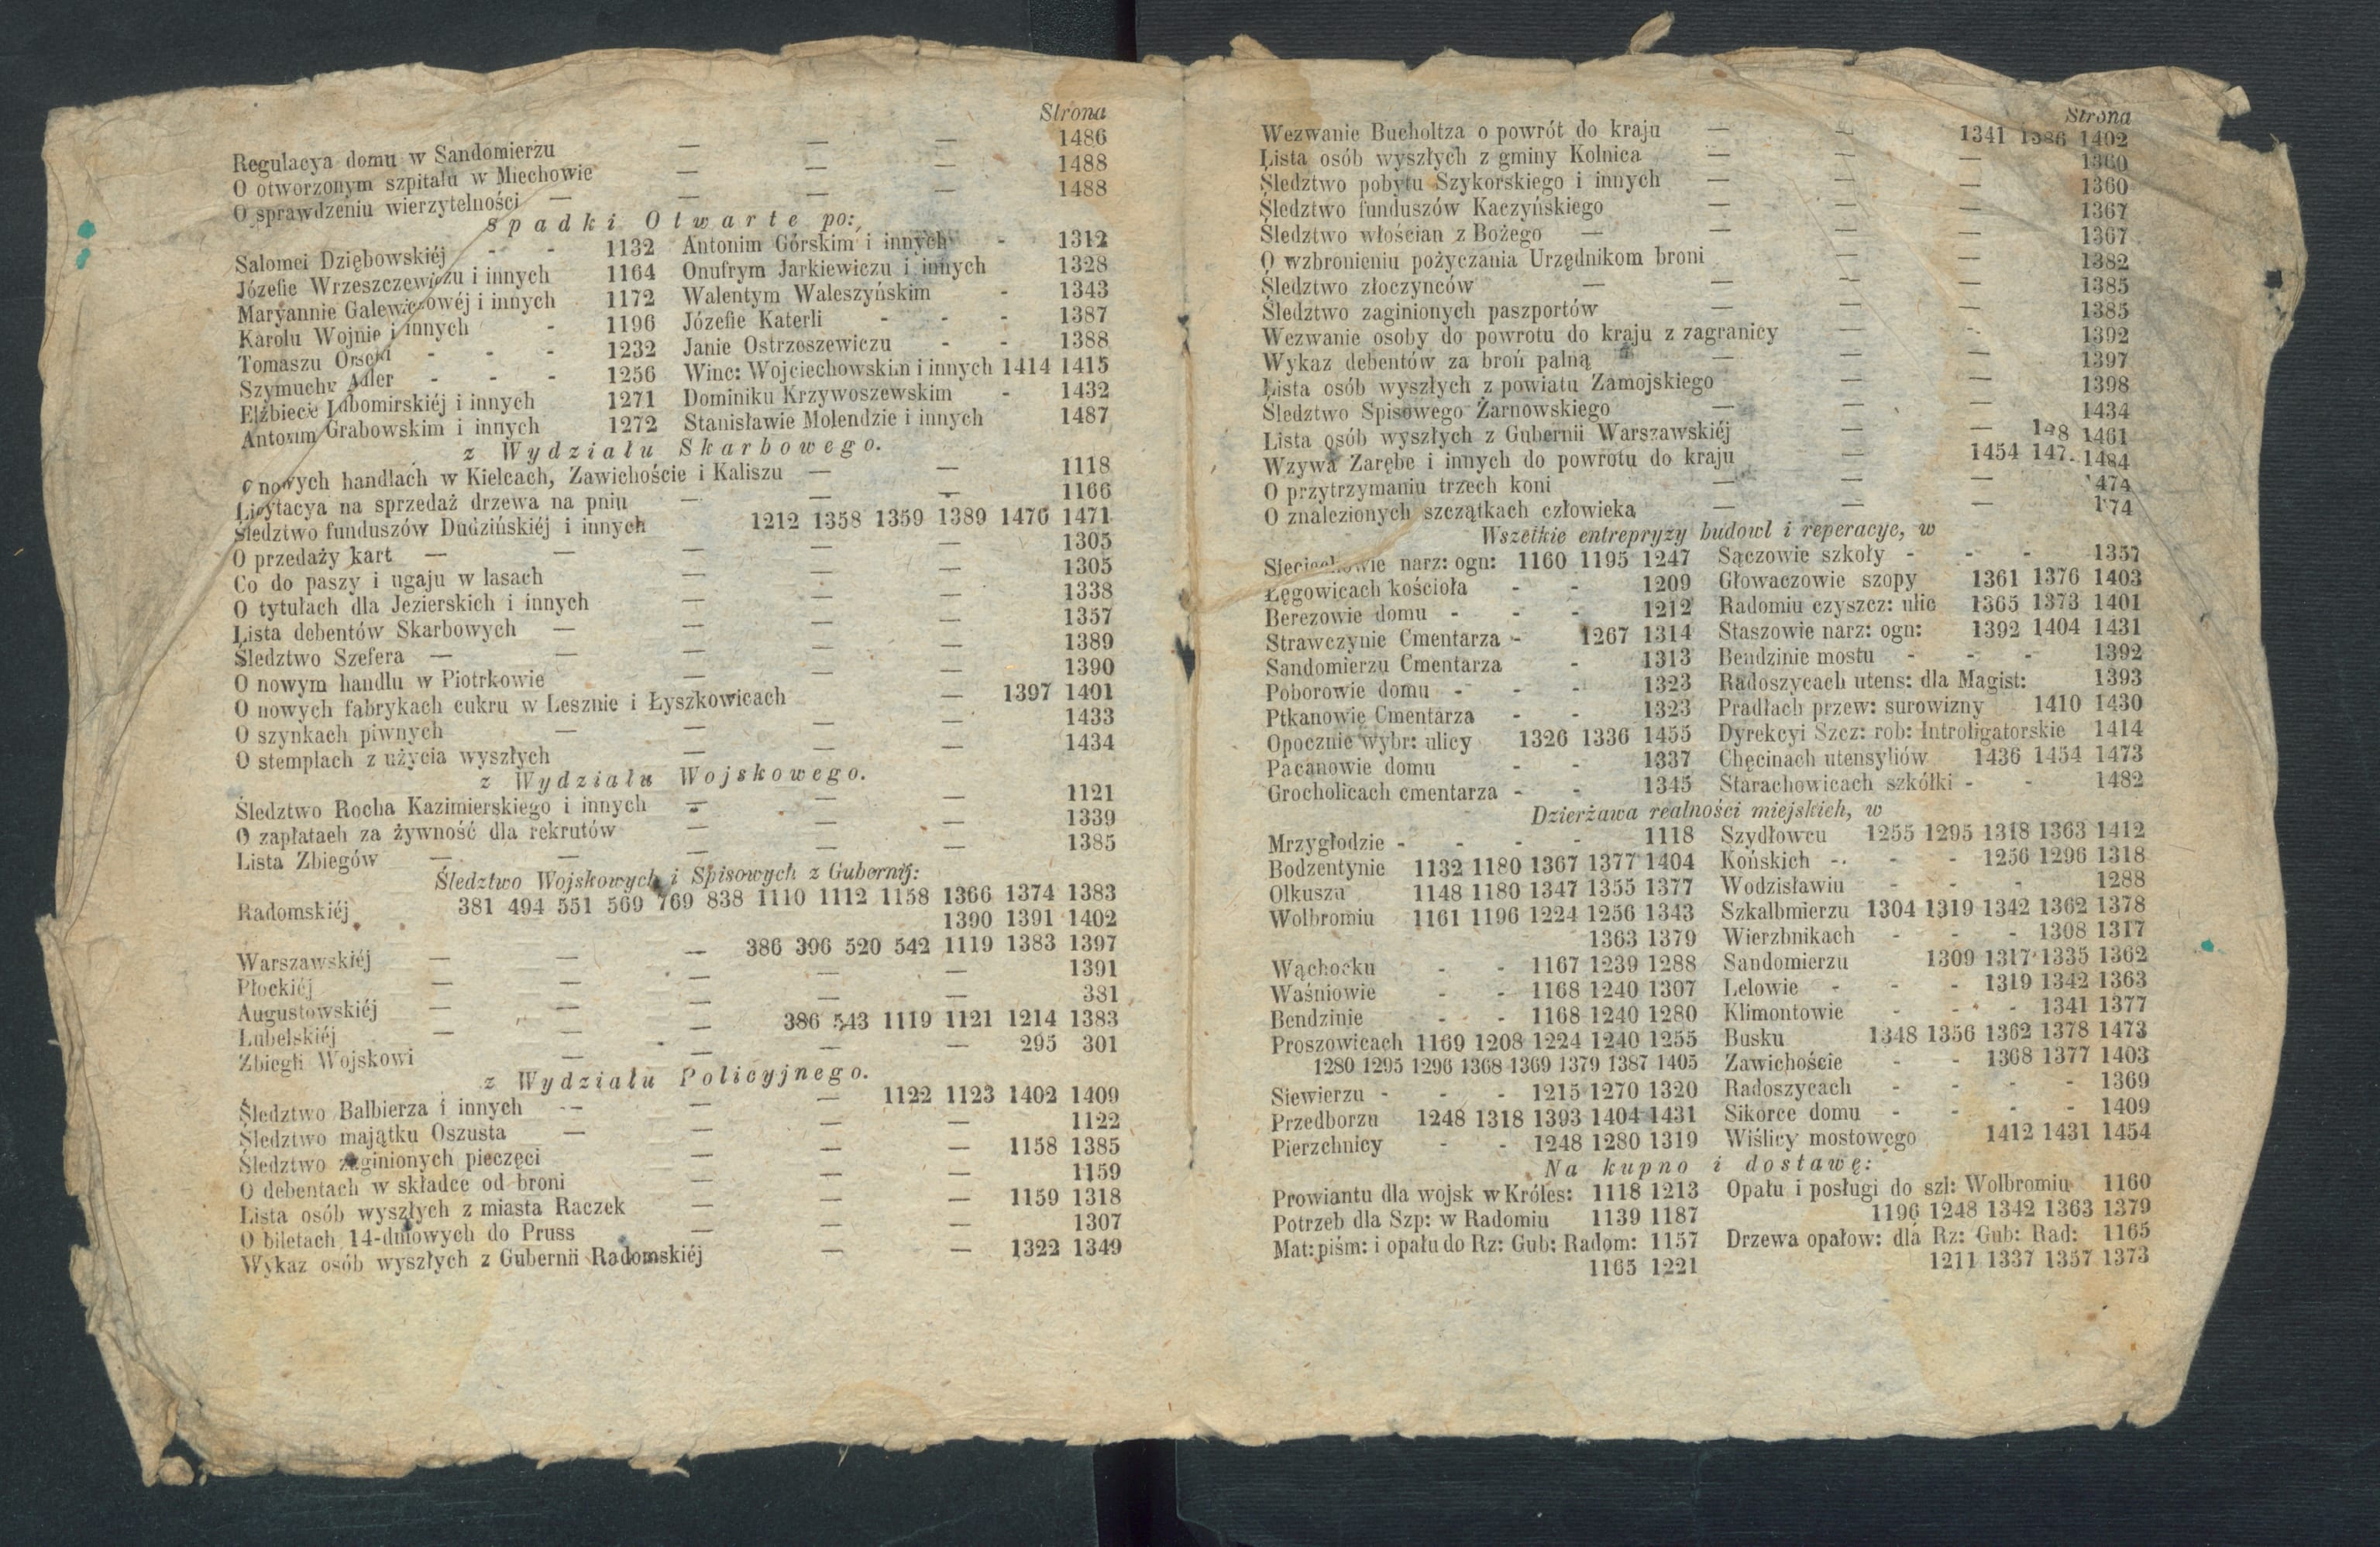 Strona
Regulacya domu w Sandomierzu — — — 1486
O otworzonym szpitalu w Miechowie — — — 1488
O sprawdzeniu wierzytelności — — — — 1488
Spadki Otwarte po:
Salomei Dziębowskiéj - - 1132 Antonim Górskim i innych - 1312
Józefie Wrzeszczewiczu i innych 1164 Onufrym Jarkiewiczu i innych 1328
Maryannie Galewiczowéj i innych 1172 Walentym Waleszyńskim - 1343
Karolu Wojnie i innych - 1196 Józefie Katerli - - - 1387
Tomaszu - - - 1232 Janie Ostrzeszewiczu - - 1388
Szymuchy Adler - - - 1256 Winc: Wojciechowskim i innych 1414 1415
Elżbiecie Lubomirskiéj i innych 1271 Dominiku Krzywoszewskim - 1432
Antonim Grabowskim i innych 1272 Stanisławie Molendzie i innych 1487
z Wydziału Skarbowego.
O nowych handlach w Kielcach, Zawichoście i Kaliszu — — 1118
Licytacya na sprzedaż drzewa na pniu — — — 1166
Śledztwo funduszów Dudzińskiéj i innych 1212 1358 1359 1389 1470 1471
O przedaży kart — — — — — 1305
Co do paszy i ugaju w lasach — — — 1305
O tytułach dla Jezierskich i innych — — — 1338
Lista debentów Skarbowych — — — — 1357
Śledztwo Szefera — — — — — 1389
O nowym handlu w Piotrkowie — — — 1390
O nowych fabrykach cukru w Lesznie i Łyszkowicach — 1397 1401
O szynkach piwnych — — — — 1433
O stemplach z użycia wyszłych — — — 1434
z Wydziału Wojskowego.
Śledztwo Rocha Kazimierskiego i innych — — — 1121
O zapłatach za żywność dla rekrutów — — — 1339
Lista Zbiegów — — — — — 1385
Śledztwo Wojskowych i Spisowych z Gubernij:
Radomskiéj 381 494 551 569 769 838 1110 1112 1158 1366 1374 1383
1390 1391 1402
Warszawskiéj — — — 386 396 520 542 1119 1383 1397
Płockiéj — — — — — 1391
Augustowskiéj — — — — — 381
Lubelskiéj — — — 386 543 1119 1121 1214 1383
Zbiegli Wojskowi — — — — 295 301
z Wydziału Policyjnego.
Śledztwo Balbierza i innych — — — 1122 1123 1402 1409
Śledztwo majątku Oszusta — — — — 1122
Śledztwo zaginionych pieczęci — — — 1158 1385
O debentach w składce od broni — — — 1159
Lista osób wyszłych z miasta Raczek — — — 1159 1318
O biletach 14-dniowych do Pruss — — — 1307
Wykaz osób wyszłych z Gubernii Radomskiéj — — 1322 1349
Strona
Wezwanie Bucholtza o powrót do kraju — — 1341 1386 1402
Lista osób wyszłych z gminy Kolnica — — — 1360
Śledztwo pobytu Szykorskiego i innych — — — 1360
Śledztwo funduszów Kaczyńskiego — — — 1367
Śledztwo włościan z Bożego — — — — 1367
O wzbronieniu pożyczania Urzędnikom broni — — 1382
Śledztwo złoczynców — — — — 1385
Śledztwo zaginionych paszportów — — — 1385
Wezwanie osoby do powrotu do kraju z zagranicy — - 1392
Wykaz debentów za broń palną — — — 1397
Lista osób wyszłych z powiatu Zamojskiego — — 1398
Śledztwo Spisowego Żarnowskiego — — — 1434
Lista osób wyszłych z Gubernii Warszawskiéj — — 1461
Wzywa Zarębe i innych do powrotu do kraju — 1454 1484
O przytrzymaniu trzech koni — — —
O znalezionych szczątkach człowieka — — —
Wszelkie entrepryzy budowl i reperacye, w
Sieciechowie narz: ogn: 1160 1195 1247 Sączowie szkoły - - - 1357
Łęgowicach kościoła - - 1209 Głowaczowie szopy 1361 1376 1403
Berezowie domu - - - 1212 Radomiu czyszcz: ulic 1365 1373 1401
Strawczynie Cmentarza - 1267 1314 Staszowie narz: ogn: 1392 1404 1431
Sandomierzu Cmentarza - 1313 Bendzinie mostu - - - 1392
Poborowie domu - - - 1323 Radoszycach utens: dla Magist: 1393
Ptkanowie Cmentarza - - 1323 Pradłach przew: surowizny 1410 1430
Opocznie wybr: ulicy 1326 1336 1455 Dyrekcyi Szcz: rob: Introligatorskie 1414
Pacanowie domu - - 1337 Chęcinach utensyliów 1436 1454 1473
Grocholicach cmentarza - - 1345 Starachowicach szkółki - - 1482
Dzierżawa realności miejskich, w
Mrzygłodzie - - - - 1118 Szydłowcu 1255 1295 1318 1363 1412
Bodzentynie 1132 1180 1367 1377 1404 Końskich - - - 1256 1296 1318
Olkuszu 1148 1180 1347 1355 1377 Wodzisławiu - - - 1288
Wolbromiu 1161 1196 1224 1256 1343 Szkalbmierzu 1304 1319 1342 1362 1378
1363 1379 Wierzbnikach - - - 1308 1317
Wąchocku - - 1167 1239 1288 Sandomierzu 1309 1317 1335 1362
Waśniowie - - 1168 1240 1307 Lelowie - - - 1319 1342 1363
Bendzinie - - 1168 1240 1280 Klimontowie - - - 1341 1377
Proszowicach 1169 1208 1224 1240 1255 Busku 1348 1356 1362 1378 1473
1280 1295 1296 1368 1369 1379 1387 1405 Zawichoście - - 1368 1377 1403
Siewierzu - - - 1215 1270 1320 Radoszycach - - - - 1369
Przedborzu 1248 1318 1393 1404 1431 Sikorce domu - - - - 1409
Pierzchnicy - - 1248 1280 1319 Wiślicy mostowego 1412 1431 1454
Na kupno i dostawę:
Prowiantu dla wojsk w Króles: 1118 1213 Opału i posługi do szl: Wolbromiu 1160
Potrzeb dla Szp: w Radomiu 1139 1187 1196 1248 1342 1363 1379
Mat: piśm: i opału do Rz: Gub: Radom: 1157 Drzewa opałow: dla Rz: Gub: Rad: 1165
1165 1221 1211 1337 1357 1373